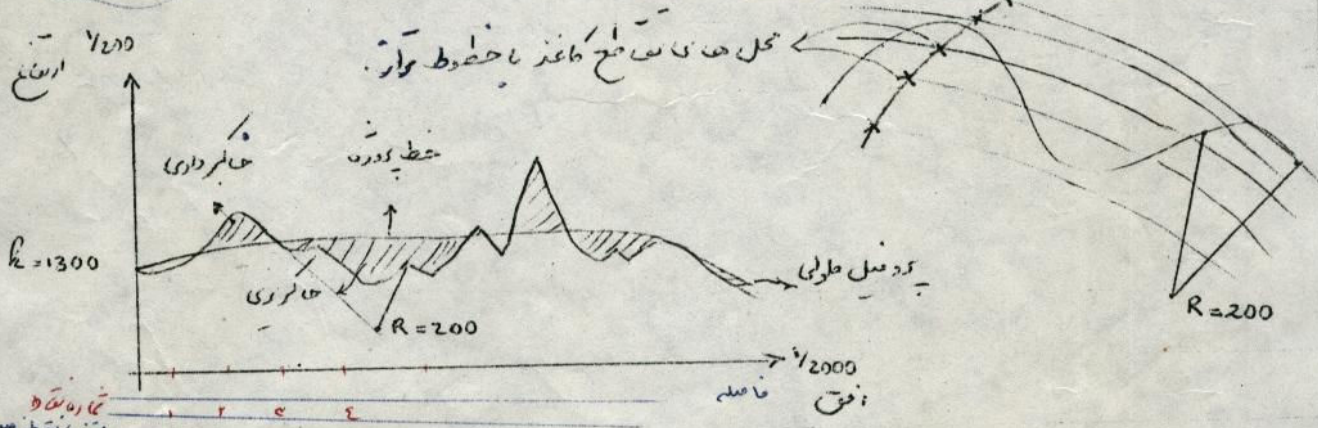 ۱/200
ارتفاع
محل های تقاطع کاغذ با خطوط تراز.
خاکبرداری
خط پروژه
h=1300
خاکریزی
R=200
پروفیل طولی
R=200
۱/2000
افق
فاصله
شماره نقاط
۱ ۲ ۳ ٤